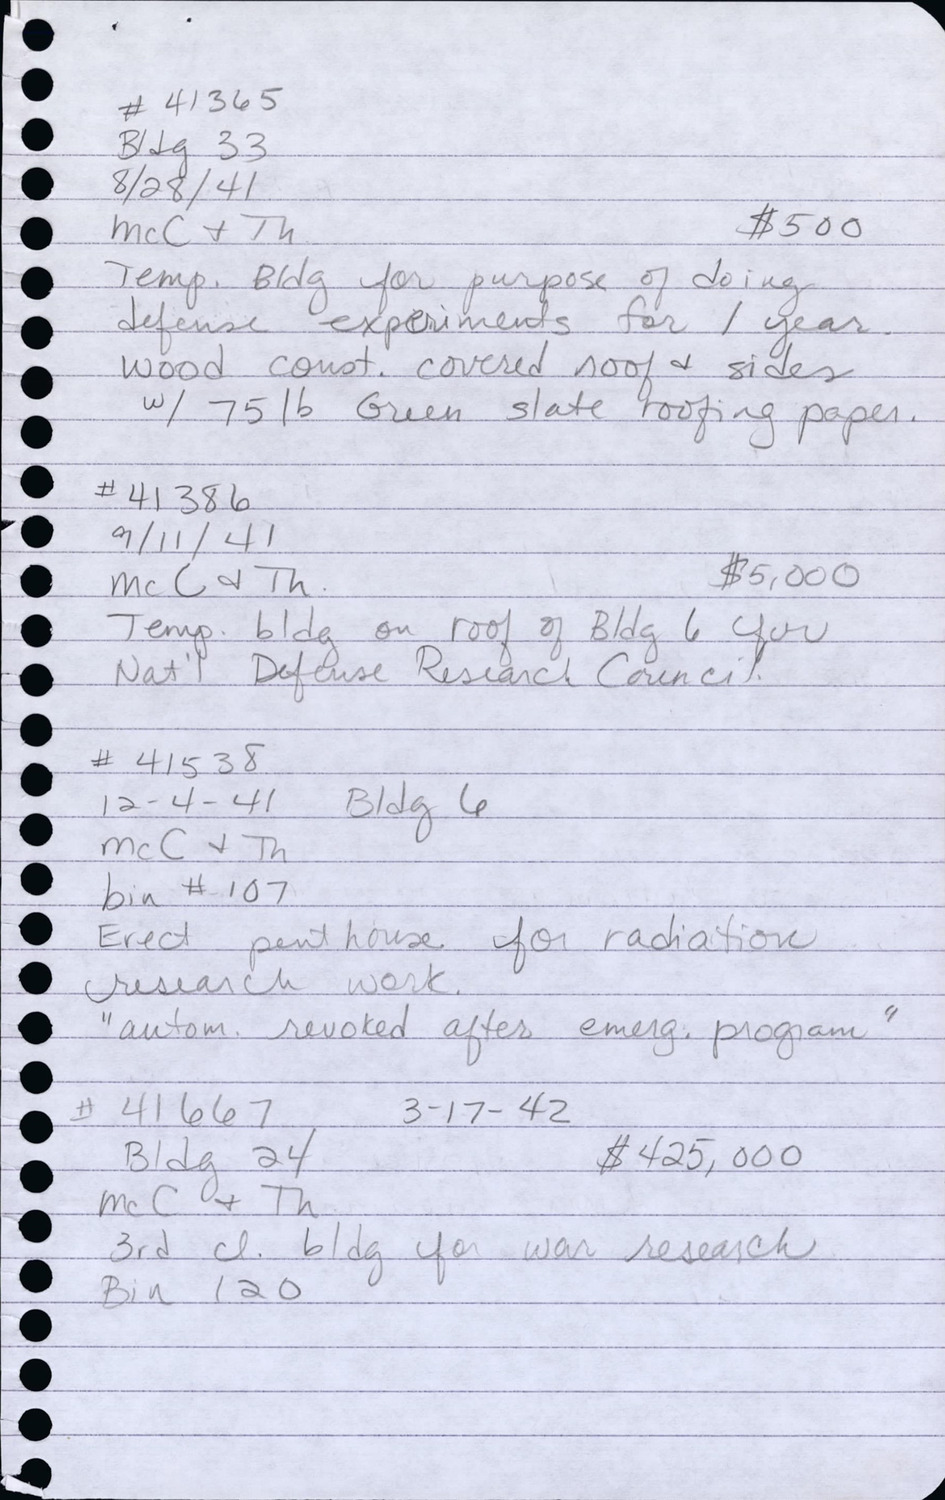 # 41365
Bldg 33
8/28/41
McC + Th $500
Temp. Bldg for purpose of doing
defense experiments for 1 year.
Wood const. covered roof & sides
w/ 75 lb Green slate roofing paper.
# 41386
9/11/41
McC & Th. $5,000
Temp. bldg on roof of Bldg 6 for
Nat'l Defense Research Council.
# 41538
12-4-41 Bldg 6
McC & Th
bin # 107
Erect penthouse for radiation
research work.
"autom. revoked after emerg. program"
# 41667 3-17-42
Bldg 24 $425,000
McC + Th
3rd cl. bldg for war research
Bin 120